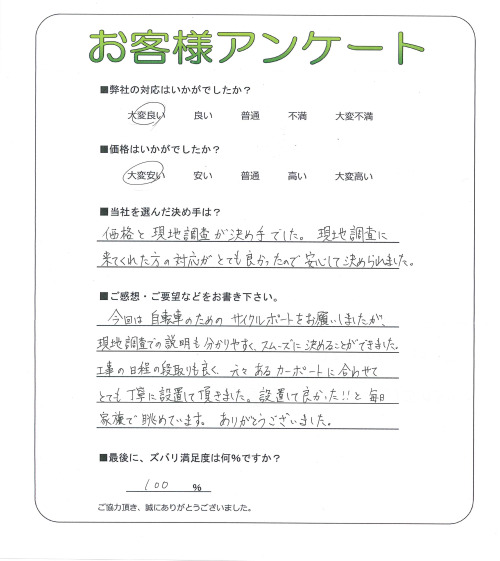 お客様アンケート
■弊社の対応はいかがでしたか？
大変良い 良い 普通 不満 大変不満
■価格はいかがでしたか？
大変安い 安い 普通 高い 大変高い
■当社を選んだ決め手は？
価格と現地調査が決め手でした。現地調査に
来てくれた方の対応がとても良かったので安心して決められました。
■ご感想・ご要望などをお書き下さい。
今回は自転車のためのサイクルポートをお願いしましたが、
現地調査での説明も分かりやすく、スムーズに決めることができました。
工事の日程の段取りも良く、元々あるカーポートに合わせて
とても丁寧に設置して頂きました。設置して良かった!!と毎日
家族で眺めています。ありがとうございました。
■最後に、ズバリ満足度は何％ですか？
100 %
ご協力頂き、誠にありがとうございました。